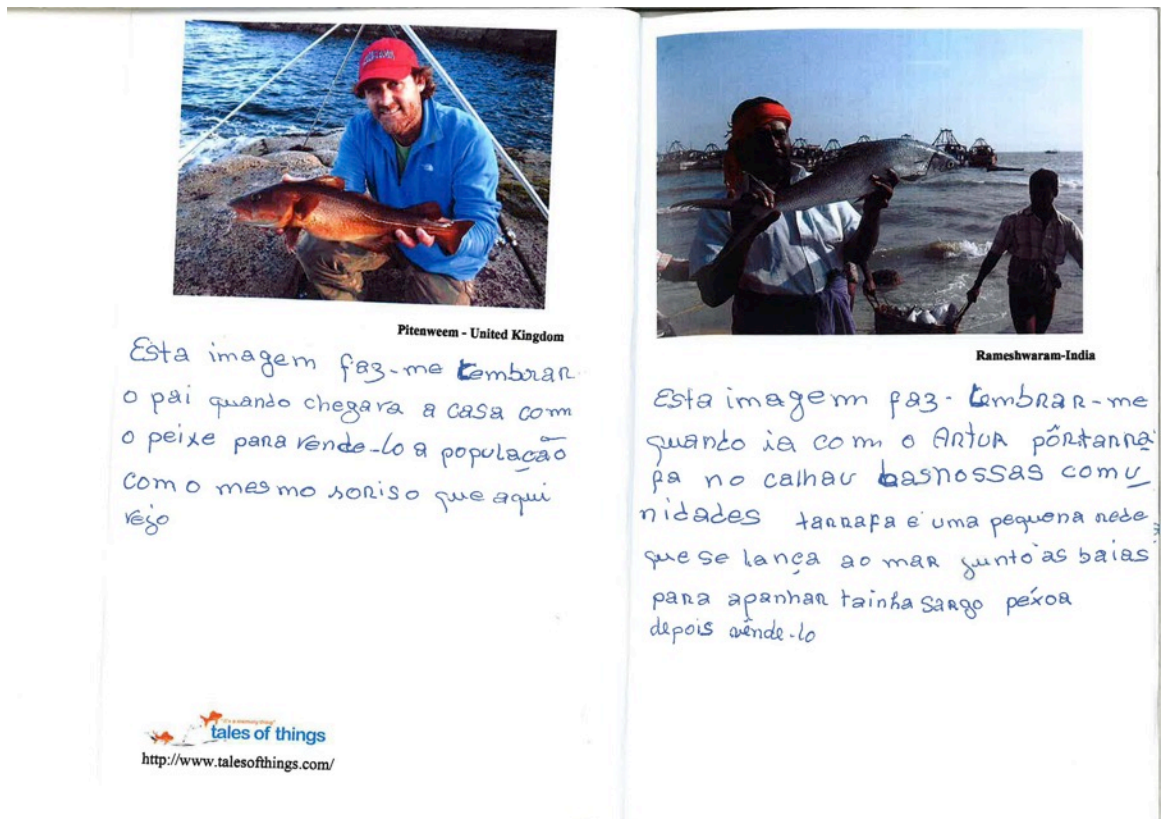 Pitenweem - United Kingdom
Esta imagem faz-me lembrar
o pai quando chegava a casa com
o peixe para vende-lo a população
com o mesmo soriso que aqui
vejo
"it's a memory thing"
tales of things
http://www.talesofthings.com/
Rameshwaram-India
Esta imagem faz-lembrar-me
quando ia com o Artur pôrtarra
fa no calhau basnossas comu
nidades tarrafa e uma pequena rede
que se lança ao mar junto as baias
para apanhar tainha sargo
depois vênde-lo